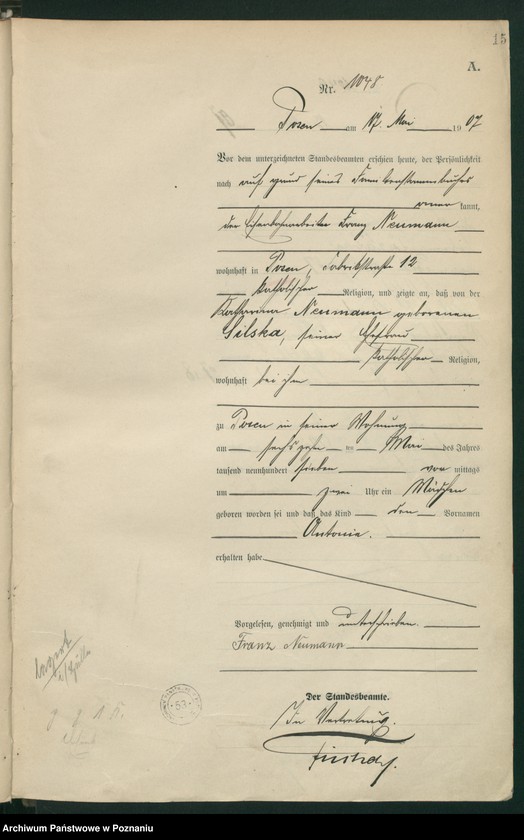 15
A.
Nr. 1048
Posen am 17. Mai 1907
Vor dem unterzeichneten Standesbeamten erschien heute, der Persönlichkeit
nach auf Grund seines Familienstammbuches
aner kannt,
der Eisenbahnarbeiter Franz Neumann
wohnhaft in Posen, Fabrikstraße 12
katholischer Religion, und zeigte an, daß von der
Katharina Neumann geborenen
Silska, seiner Ehefrau
katholischer Religion,
wohnhaft bei ihm
zu Posen in seiner Wohnung
am sechszehn ten Mai des Jahres
tausend neunhundert sieben vor mittags
um zwei Uhr ein Mädchen
geboren worden sei und daß das Kind den Vornamen
Antonie.
erhalten habe
Vorgelesen, genehmigt und unterschrieben.
Franz Neumann
Der Standesbeamte.
In Vertretung.
53
Archiwum Państwowe w Poznaniu